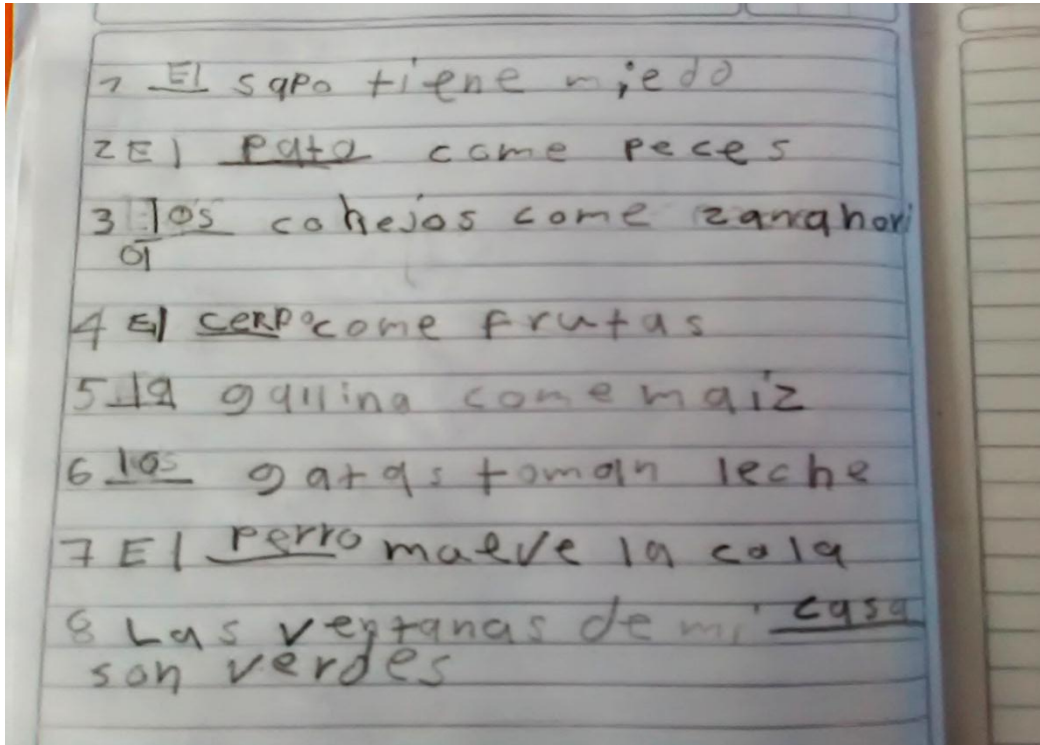 1 El sapo tiene miedo
2 El pato come peces
3 los conejos come zanahori
a
4 El cerdo come frutas
5 la gallina come maíz
6 los gatos toman leche
7 El perro mueve la cola
8 Las ventanas de mi casa
son verdes